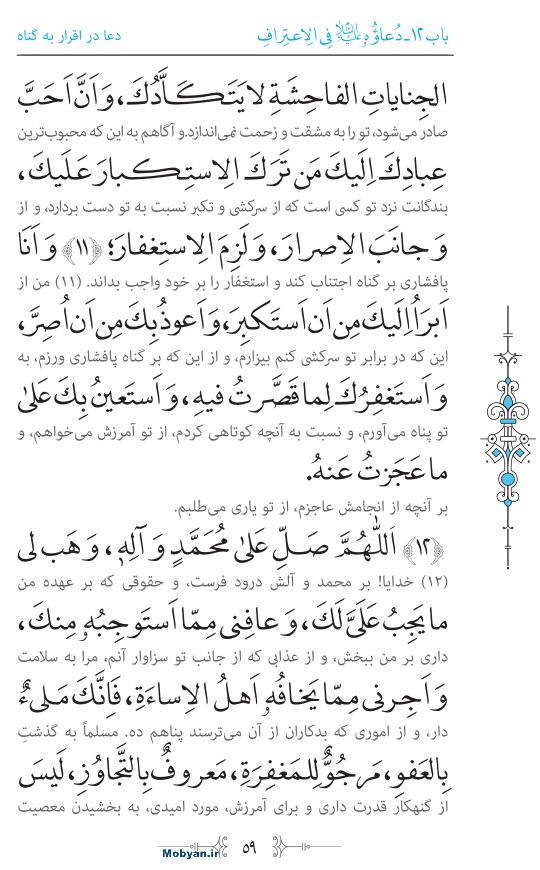 باب ۱۲ـ دُعاؤُهُ عليه السلام فِي الِاعتِرافِ
دعا در اقرار به گناه
الجِناياتِ الفاحِشَةِ لا يَتَكَأَّدُكَ، وَ اَنَّ اَحَبَّ
صادر می‌شود، تو را به مشقت و زحمت نمی‌اندازد. و آگاهم به این که محبوب‌ترین
عِبادِكَ اِلَيكَ مَن تَرَكَ الِاستِكبارَ عَلَيكَ،
بندگانت نزد تو کسی است که از سرکشی و تکبر نسبت به تو دست بردارد، و از
وَ جانَبَ الِاصرارَ، وَ لَزِمَ الِاستِغفارَ؛ ﴿۱۱﴾ وَ اَنَا
پافشاری بر گناه اجتناب کند و استغفار را بر خود واجب بداند. (۱۱) من از
اَبرَأُ اِلَيكَ مِن اَن اَستَكبِرَ، وَ اَعوذُ بِكَ مِن اَن اُصِرَّ،
این که در برابر تو سرکشی کنم بیزارم، و از این که بر گناه پافشاری ورزم، به
وَ اَستَغفِرُكَ لِما قَصَّرتُ فيهِ، وَ اَستَعينُ بِكَ عَلىٰ
تو پناه می‌آورم، و نسبت به آنچه کوتاهی کردم، از تو آمرزش می‌خواهم، و
ما عَجَزتُ عَنهُ.
بر آنچه از انجامش عاجزم، از تو یاری می‌طلبم.
﴿۱۲﴾ اَللّٰهُمَّ صَلِّ عَلىٰ مُحَمَّدٍ وَ آلِهِ، وَ هَب لى
(۱۲) خدایا! بر محمد و آلش درود فرست، و حقوقی که بر عهده من
ما يَجِبُ عَلَىَّ لَكَ، وَ عافِنى مِمّا اَستَوجِبُهُ مِنكَ،
داری بر من ببخش، و از عذابی که از جانب تو سزاوار آنم، مرا به سلامت
وَ اَجِرنى مِمّا يَخافُهُ اَهلُ الِاساءَةِ، فَاِنَّكَ مَلىءٌ
دار، و از اموری که بدکاران از آن می‌ترسند پناهم ده. مسلماً به گذشتِ
بِالعَفوِ، مَرجُوٌّ لِلمَغفِرَةِ، مَعروفٌ بِالتَّجاوُزِ، لَيسَ
از گنهکار قدرت داری و برای آمرزش، مورد امیدی، به بخشیدن معصیت
۵۹
Mobyan.ir